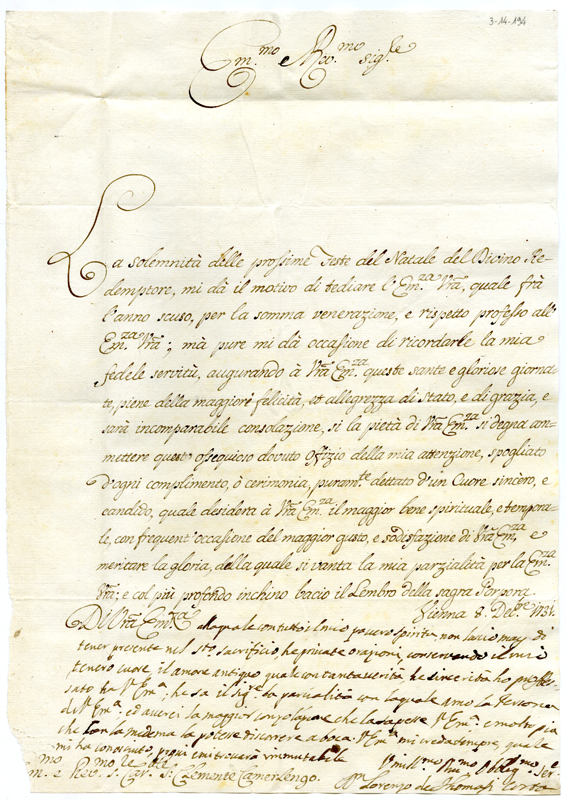 3-14-194
Em.mo e Rev.mo Sig.re
La solemnità delle prossime Feste del Natale del Divino Re-
demptore, mi dà il motivo di tediare l'Em.za Vrã, quale frà
l'anno scuso, per la somma venerazione, e rispetto professo all'
Em.za Vrã; mà pure mi dà occasione di ricordarle la mia
fedele servitù, augurando à Vrã Em.za queste sante e gloriose giorna-
te, piene della maggiore felicità, et allegrezza di Stato, e di grazia, e
sarà incomparabile consolazione, si la pietà di Vrã Em.za si degna am-
mettere questo ossequioso dovuto Offizio della mia attenzione, spogliato
d'ogni complimento, ò cerimonia, puram.te dettato d'un Cuore sincero, e
candido, quale desidera à Vrã Em.za il maggior bene spirituale, e tempora-
le, con frequent'occasione del maggior gusto, e sodisfazione di Vrã Em.za e
meritare la gloria, della quale si vanta la mia parzialità per la Em.za
Vrã; e col più profondo inchino bacio il Lembro della sagra Porpora.
Vienna 8. Dec.bre 1731.
Di Vrã Em.za alla quale con tutto il mio povero spirito, non lascio may di
tener presente nel sto sacrificio, he private orazioni, conservando il mio
tenero cuore, il amore antiquo quale con tanta verità he sincerità ho profes-
sato ha V. Em.a he sa il la parzialità con la quale amo la Persona
di V. Em.a, ed averei la maggior che la sapese V. Em.a e molto più
che con la medema la potese discorere a boca V. Em.a mi creda sempre, quale
mi ha conosciuto, mi troverà immutabile
V. mill.mo Obblig.mo Ser.e
Em.mo e Rev.mo S. Car. S. Clemente Camerlengo.
Lorenzo de Thomasi